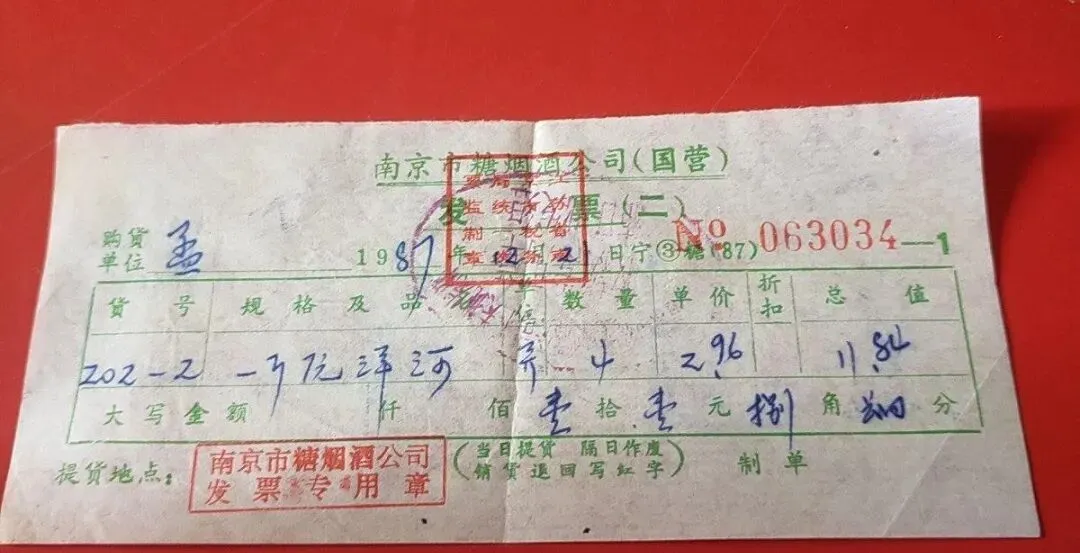 南京市糖烟酒公司(国营)
发 票 (二)
购货单位 孟 1987年12月2日 宁③糖(87) № 063034—1
货号 规格及品名 数量 单价 折扣 总值
202-2 洋河 4 2.96 11.84
大写金额 仟 佰 壹拾壹元捌角肆分
提货地点: 南京市糖烟酒公司 (当日提货 隔日作废 制单
发票专用章 销货退回写红字)